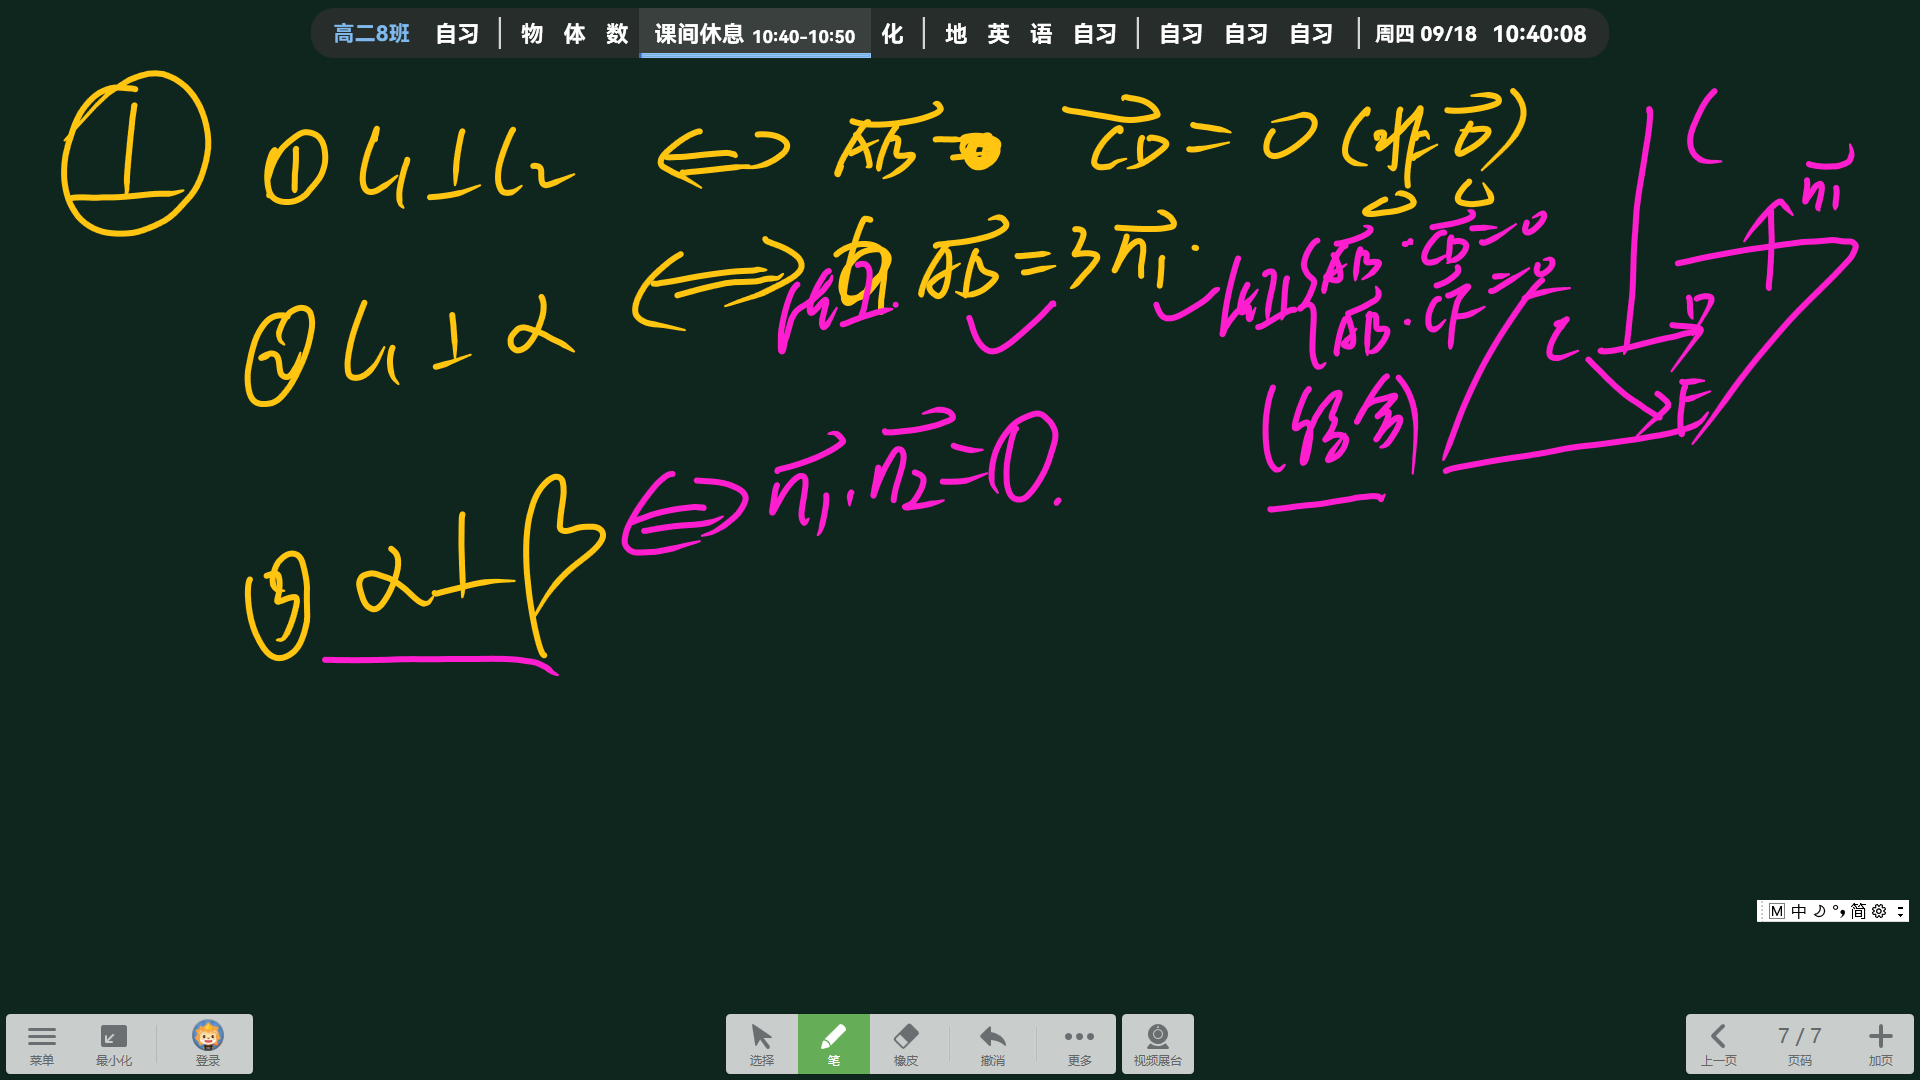 高二8班 自习 | 物 体 数 课间休息 10:40-10:50 化 | 地 英 语 自习 | 自习 自习 自习 | 周四 09/18 10:40:08
⊥ ① l₁⊥l₂ ⇔ AB· CD=0 (非0)
② l₁⊥α ⇔ AB=3n₁.
AB·CD=0
AB·CF=0
③ α⊥β ⇔ n₁·n₂=0.
l
n₁
C
D
E
M 中 简
菜单 最小化 登录 选择 笔 橡皮 撤消 更多 视频展台 上一页 7 / 7 页码 加页